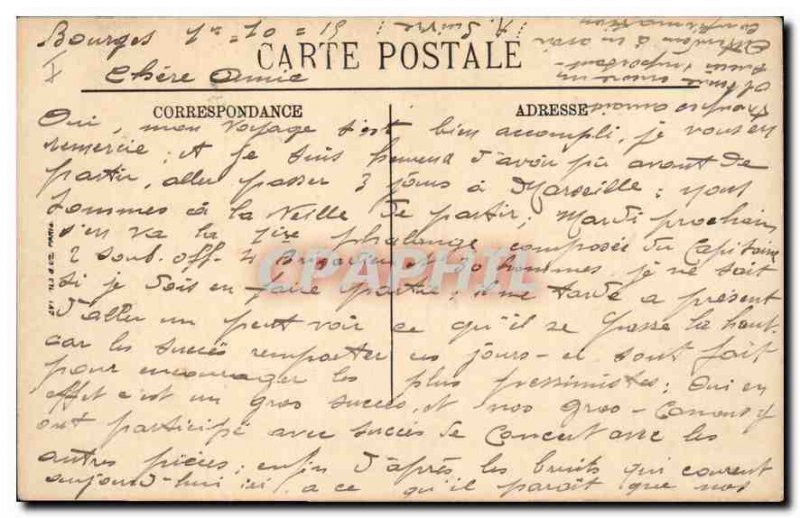 Bourges 1er = 10 = 15
A. Suivre
I
CARTE POSTALE
Chère Amie
CORRESPONDANCE
ADRESSE
Oui, mon voyage s'est bien accompli, je vous en
remercie; et je suis heureux d'avoir pu avant de
partir, aller passer 3 jours à Marseille; nous
sommes à la veille de partir; Mardi prochain
s'en va la 1ière phalange composée du Capitaine
2 sous.off- 4 Brigadiers 30 hommes, je ne sait
si je dois en faire partie; il me tarde a présent
d'aller un peut voir ce qu'il se passe la haut.
car les succès remporter ces jours-ci sont fait
pour encourager les plus pessimistes; oui en
effet c'est un gros succès, et nos gros-Canons y
ont participé avec succès de concert avec les
autres pièces; enfin d'après les bruits qui courent
aujourd'hui ici, a ce qu'il parait que nos
CPAPHIL